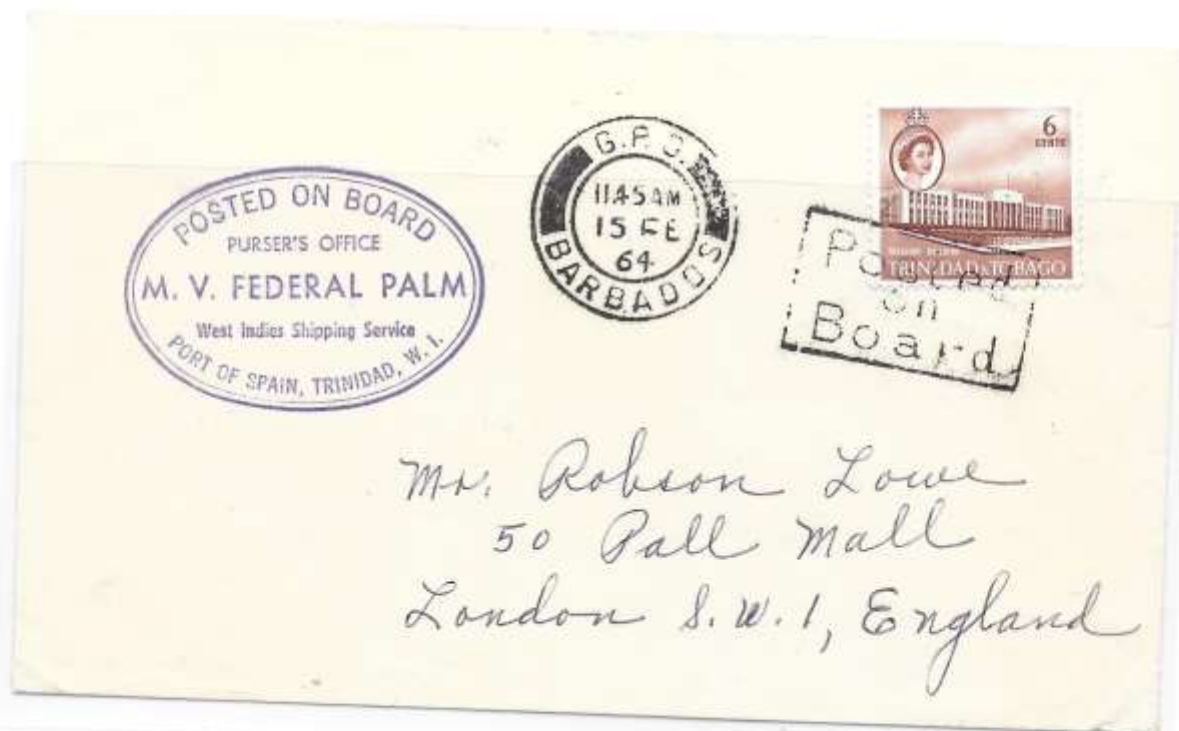 POSTED ON BOARD
PURSER'S OFFICE
M. V. FEDERAL PALM
West Indies Shipping Service
PORT OF SPAIN, TRINIDAD, W. I.
G.P.O.
11.45AM
15 FE
64
BARBADOS
6
CENTS
TRINIDAD & TOBAGO
Posted
on
Board
Mr. Robson Lowe
50 Pall Mall
London S.W.1, England